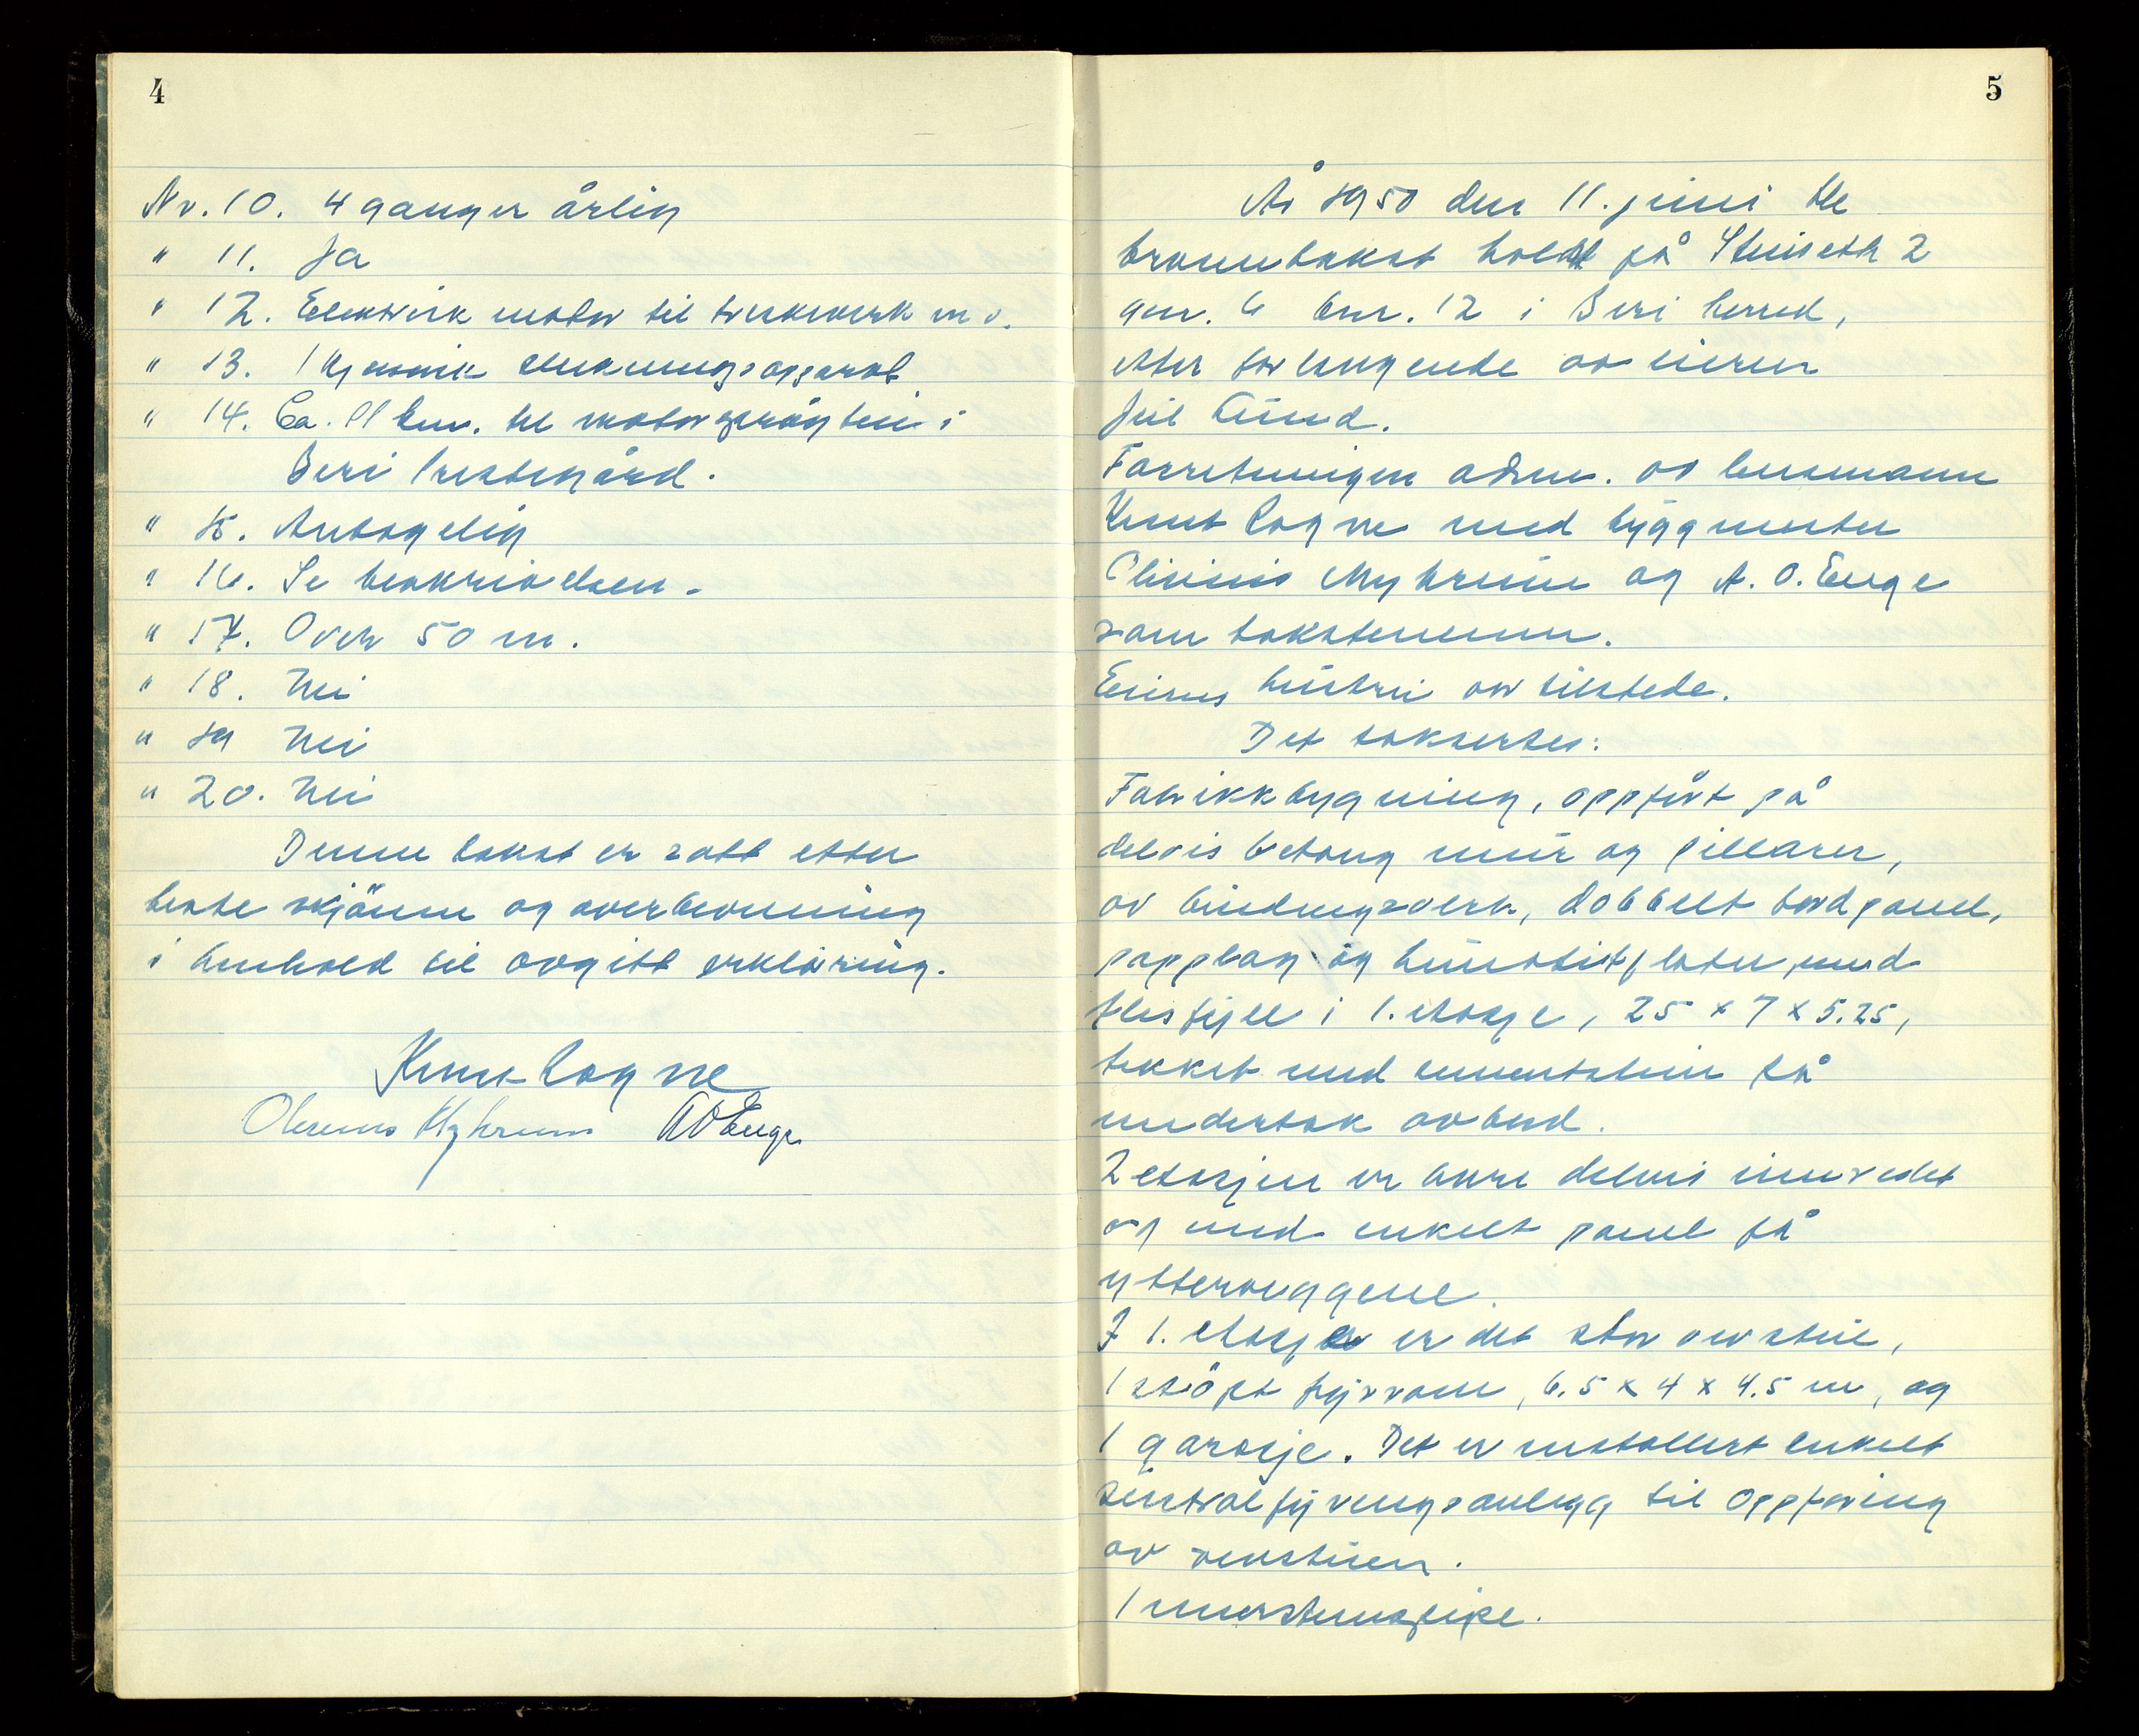 4
Nr. 10. 4 ganger årlig
" 11. Ja
" 12. Elektrisk motor til treskeverk m.v.
" 13. 1 kjemisk slukningsapparat
" 14. Ca. 11 km. til motorsprøyten i
Biri Prestegård.
" 15. Antagelig
" 16. Se beskrivelsen.
" 17. Over 50 m.
" 18. Nei
" 19 Nei
" 20. Nei
Denne takst er satt etter
beste skjönn og overbevisning
i henhold til avgitt erklæring.
Knut Logne
Olenius Myhrum AOEnge
5
År 1950 den 11. juni ble
branntakst holdt på Stuiseth 2
gnr. 6 bnr. 12 i Biri herred,
etter forlangende av eieren
Lund.
Forretningen adm. av lensmann
Knut Logne med byggmester
Olenius Myhrum og A. O. Enge
som takstmenn.
Eierens hustru var tilstede.
Det takseres:
Fabrikkbygning, oppført på
delvis betong mur og pillarer,
av bindingsverk, dobbelt bordpanel,
papplag og hunotitplater, med
flisfyll i 1. etasje, 25 x 7 x 5.25,
tekket med sementstein på
undertak av bord.
2 etasjen er bare delvis innredet
og med enkelt panel på
ytterveggene.
I 1. etasje er det stor verksted,
1 støpt fyrrom, 6.5 x 4 x 4.5 m, og
1 garasje. Det er installert enkelt
sentralfyringsanlegg til oppvarming
av
1 murstenspipe.